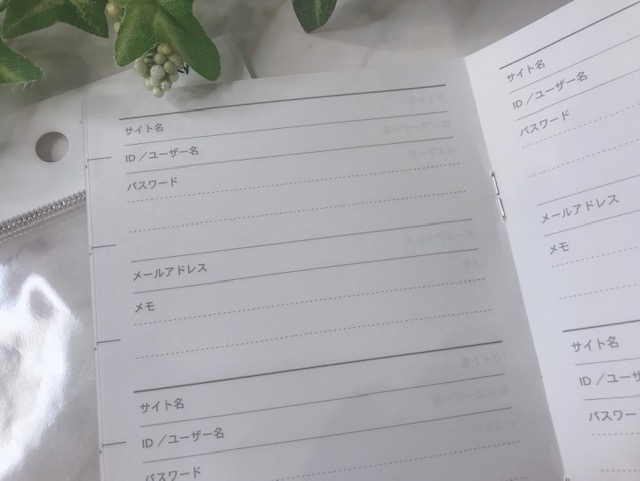 サイト名
ID／ユーザー名
パスワード
メールアドレス
メモ
サイト名
ID／ユーザー名
パスワード
サイト名
ID／ユーザー名
パスワード
メールアドレス
メモ
サイト名
ID／ユーザ
パスワー